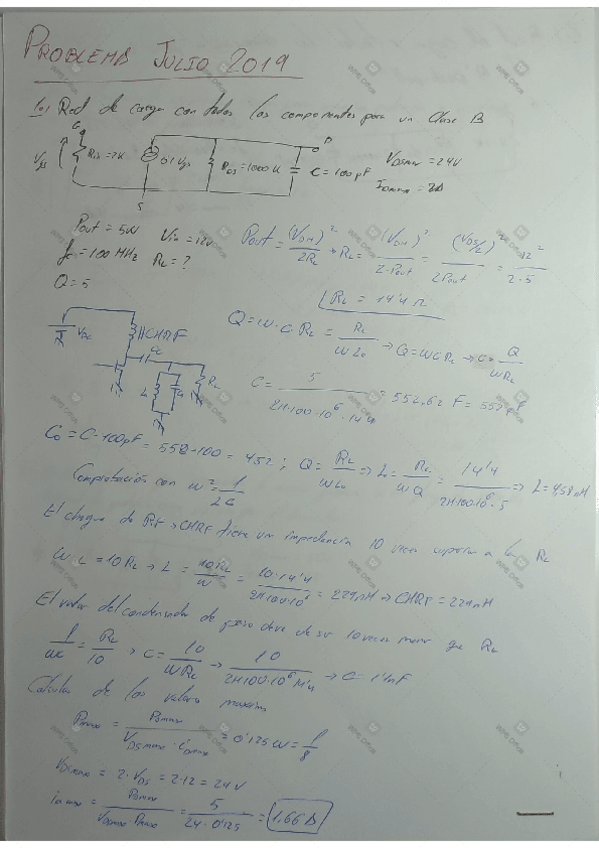 PROBLEMA JULIO 2019
1a) Red de carga con todos los componentes para un Clase B
G D
Vgs RGS=2K 0'1Vgs RDS=1000K C=100pF VDSmax=24V
IDmax=2A
S
Pout = 5W Vin=12V
fc=100 MHz RL=?
Q=5
Pout = (VDM)²/2RL → RL = (VDM)²/2·Pout = (VDS/2)²/2Pout = 12²/2·5
RL = 14'4 Ω
VDC CHRF
Q=W·C·RL = RL/WLo → Q=WCRL → C= Q/WRL
C = 5/2π·100·10⁶·14'4 = 552,62 F = 552pF
Co = C-100pF = 552-100 = 452 ; Q = RL/WLo → L = RL/WQ = 14'4/2π100·10⁶·5 → L=4,58nH
Comprobación con W² = 1/LC
El choque de RF → CHRF tiene una impedancia 10 veces superior a la RL
WL=10RL → L = 10RL/W = 10·14'4/2π100·10⁶ = 229nH → CHRF = 229nH
El valor del condensador de paso debe de ser 10 veces menor que RL
1/WC = RL/10 → C = 10/WRL → 10/2π100·10⁶·14'4 → C=1'1nF
Calculos de los valores maximos
Pmax = Pomax/VDSmax·iDmax = 0'125W = 1/8
VDSmax = 2·VDS = 2·12 = 24V
imax = Pomax/VDSmax·Pmax = 5/24·0'125 = 1.66A